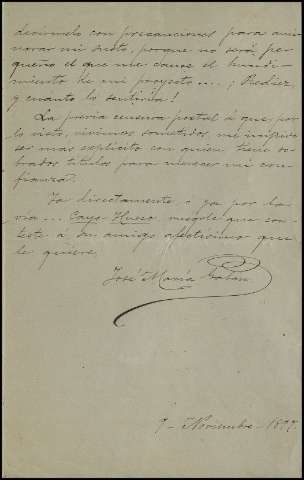 decirmelo con precauciones para ami-
norar mi susto, porque no será pe-
queño el que me cause el hundi-
miento de mi proyecto....; Rediez,
y cuanto lo sentiría!
La previa censura postal á que, por
lo visto, vivimos sometidos, me impide
ser mas explicito con quien tiene so-
brados titulos para merecer mi con-
fianza.
Ya directamente o ya por la
via... Cayo Hueso ruegole que con-
teste á su amigo afectisimo que
le quiere,
José María
9 - Noviembre - 1897